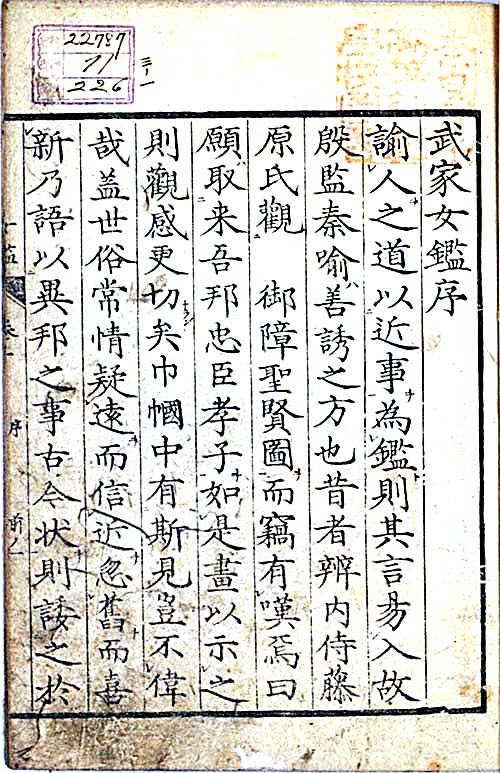 武家女鑑序
諭人之道以近事為鑑則其言易入故
殷監秦喻善誘之方也昔者辨内侍藤
原氏觀　御障聖賢圖而竊有嘆焉曰
願取来吾邦忠臣孝子如是畫以示之
則觀感更切矣巾幗中有斯見豈不偉
哉蓋世俗常情疑遠而信近忽舊而喜
新乃語以異邦之事古今状則諉之於
序
22787
11
226
三ー一